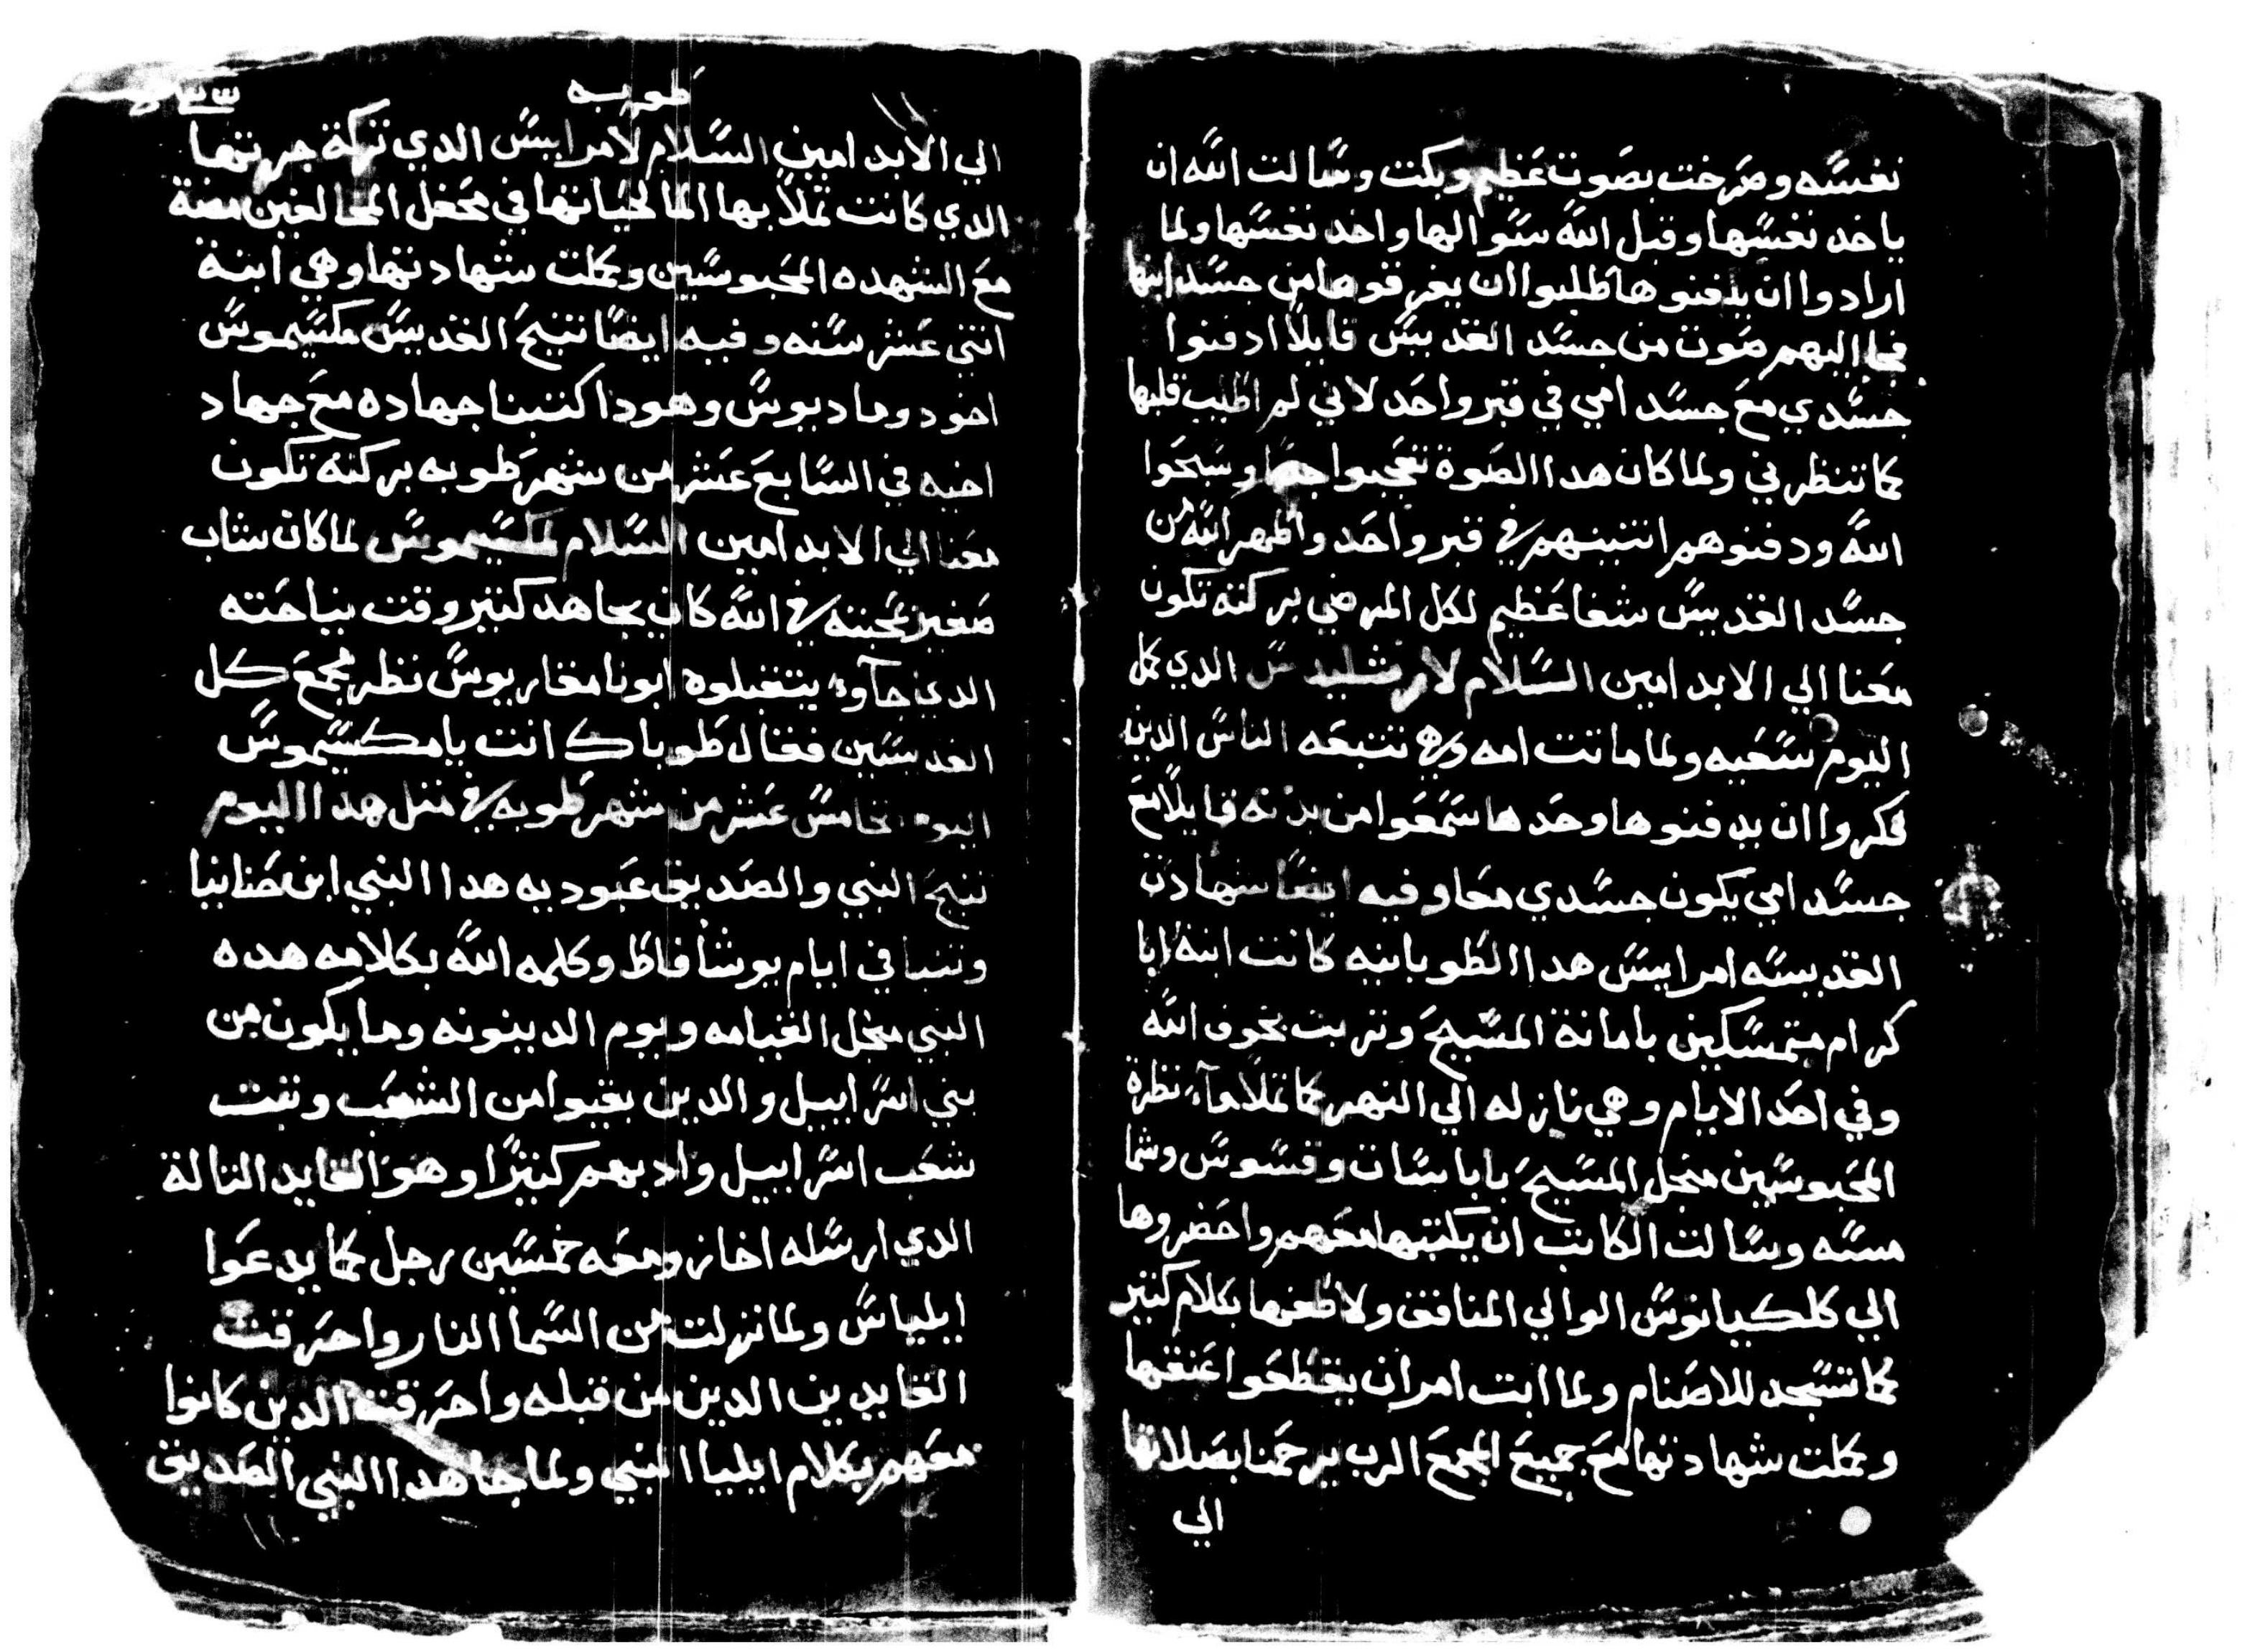 نفسه وصرخت بصوت عظيم وبكت وسالت الله ان
ياخد نفسها وقبل الله سوالها واخد نفسها ولما
ارادوا ان يدفنوها طلبوا ان يفرقوها من جسد ابنها
فجا اليهم صوت من جسد القديس قايلا ادفنوا
جسدي مع جسد امي في قبر واحد لاني لم اطيب قلبها
كما تنظرني ولما كان هدا الصوة تعجبوا جدا وسبحوا
الله ودفنوهم اتنينهم في قبر واحد واظهر الله من
جسد القديس شفا عظيم لكل المرضي بركته تكون
معنا الي الابد امين السلام لارشليدس الدي كمل
اليوم سعيه ولما ماتت امه وهي تتبعه الناس الدين
فكروا ان يدفنوها وحدها سمعوا من بدنه قايلا مع
جسد امي يكون جسدي معا وفيه ايضا شهادة
القديسه امرايس هدا الطوبانيه كانت ابنة ابا
كرام متمسكين بامانة المسيح وتربت بخوف الله
وفي احد الايام وهي نازله الي النهر كما تملا مآء نظرة
المحبوسين منجل المسيح باباسات وقسوس وشما
مسه وسالت الكاتب ان يكتبها معهم واحضروها
الي كلكيانوس الوالي المنافق ولاطفها بكلام كتير
كما تسجد للاصنام ولما ابت امر ان يقطعوا عنقها
وكملت شهادتها مع جميع المجمع الرب يرحمنا بصلاتها
الي
طوبه
الي الابد امين السلام لامرايس الدي تركة جرتها
الدي كانت تملا بها الما لحياتها في محفل المخالفين مضة
مع الشهده المحبوسين وكملت شهادتها وهي ابنة
اتني عشر سنه وفيه ايضا تنيح القديس مكسيموس
اخو دوماديوس وهودا كتبنا جهاده مع جهاد
اخيه في السابع عشر من شهر طوبه بركته تكون
معنا الي الابد امين السلام لمكسيموس لما كان شاب
صغير لمحبته في الله كان يجاهد كتير وقت نياحته
الدي جآوا يتقبلوه ابونا مقاريوس نظر مجمع كل
القديسين فقال طوباك انت يا مكسيموس
اليوم الخامس عشر من شهر طوبه في متل هدا اليوم
تنيح النبي والصديق عبوديه هدا النبي ابن صنانيا
وتنبا في ايام يوشافاط وكلمه الله بكلامه هده
النبي منجل القيامه ويوم الدينونه وما يكون من
بني اسراييل والدين بقيوا من الشعب وتبت
شعب اسراييل وادبهم كتيرا وهو القايد التالة
الدي ارسله اخاز ومعه خمسين رجل كما يدعوا
ايلياس ولما نزلت من السما النار واحرقت
القايدين الدين من قبله واحرقت الدين كانوا
معهم بكلام ايليا النبي ولما جا هدا النبي الصديق